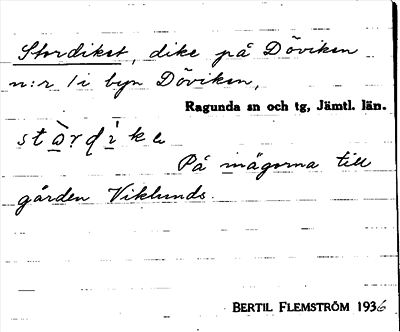 Stordiket, dike på Döviken
n:r 1 i byn Döviken,
Ragunda sn och tg, Jämtl. län.
stòrdìke
På mägorna till
gården Viklunds.
BERTIL FLEMSTRÖM 1936